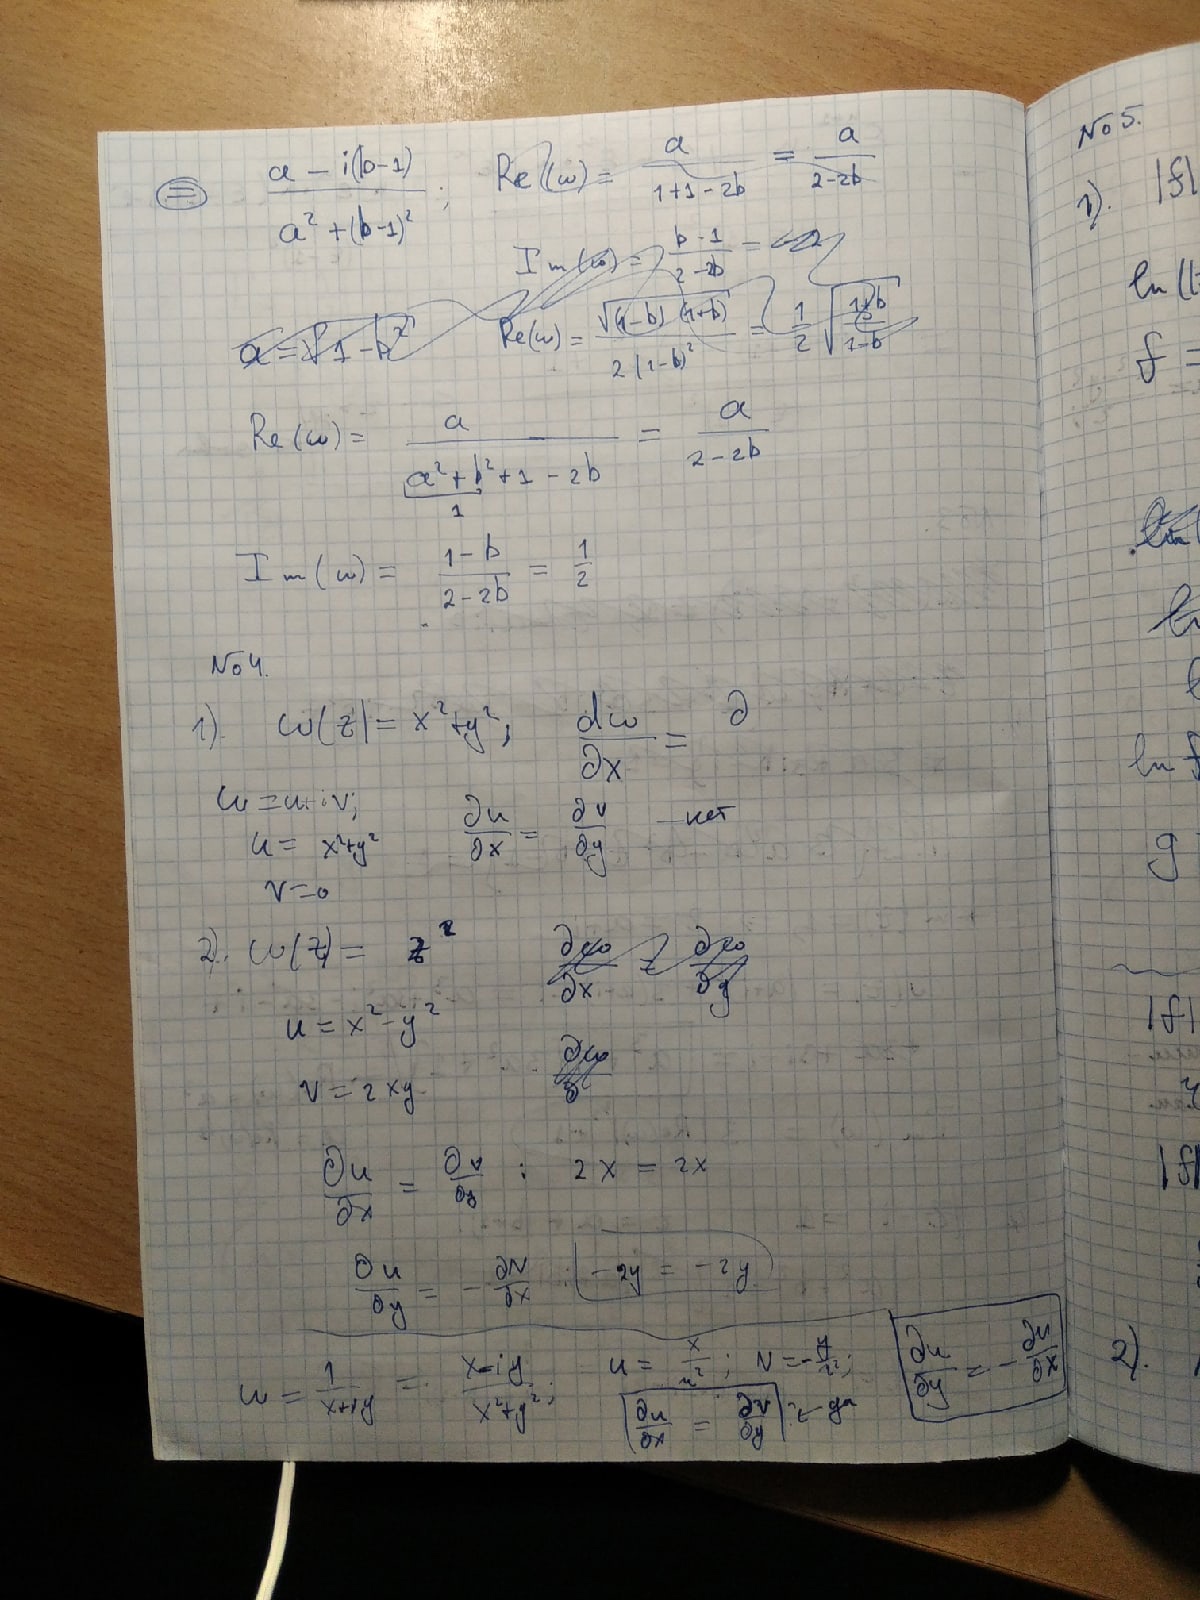 = (a - i(b-1))/(a² + (b-1)²); Re(ω) = a/(1+1-2b) = a/(2-2b)
Im(ω) = (b-1)/(2-2b) =
a = √(1-b²) Re(ω) = √((1-b)(1+b))/(2(1-b)²) = 1/2 √((1+b)/(1-b))
Re(ω) = a/(a²+b²+1-2b) = a/(2-2b)
1
Im(ω) = (1-b)/(2-2b) = 1/2
№4.
1). ω(z) = x²+y²; dω/∂x = ∂
ω = u+iv;
u = x²+y² ∂u/∂x = ∂v/∂y - нет
v=0
2). ω(z) = z² ∂ω/∂x = ∂ω/∂y
u = x²-y² ∂ω
v = 2xy
∂u/∂x = ∂v/∂y : 2x = 2x
∂u/∂y = -∂v/∂x : -2y = -2y
ω = 1/(x+iy) = (x-iy)/(x²+y²); u = x/r²; v = -y/r²; ∂u/∂y = -∂u/∂x
∂u/∂x = ∂v/∂y - да
№5.
1). |f|
ln(1
f =
ln
ln f
g
|f|
|f|
2).